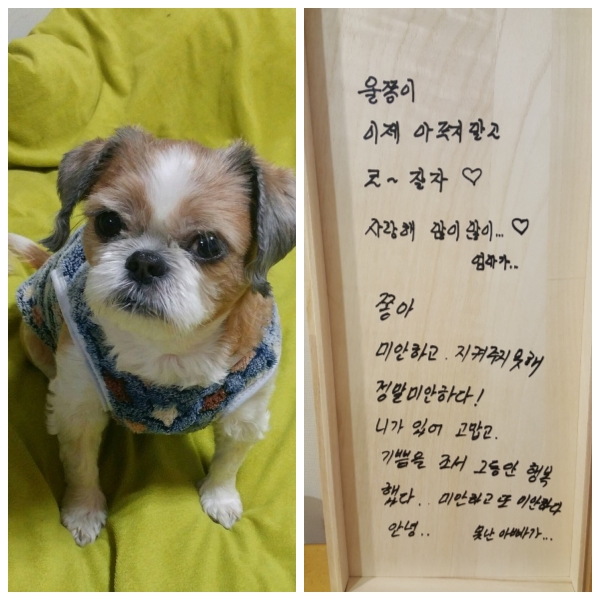 울쫑이
이제 아프지말고
코~ 잘자 ♡
사랑해 많이많이... ♡
엄마가..
쫑아
미안하고. 지켜주지못해
정말미안하다!
니가 있어 고맙고.
기쁨을 조서 그동안 행복
했다.. 미안하고 또 미안하다
안녕..
못난 아빠가...